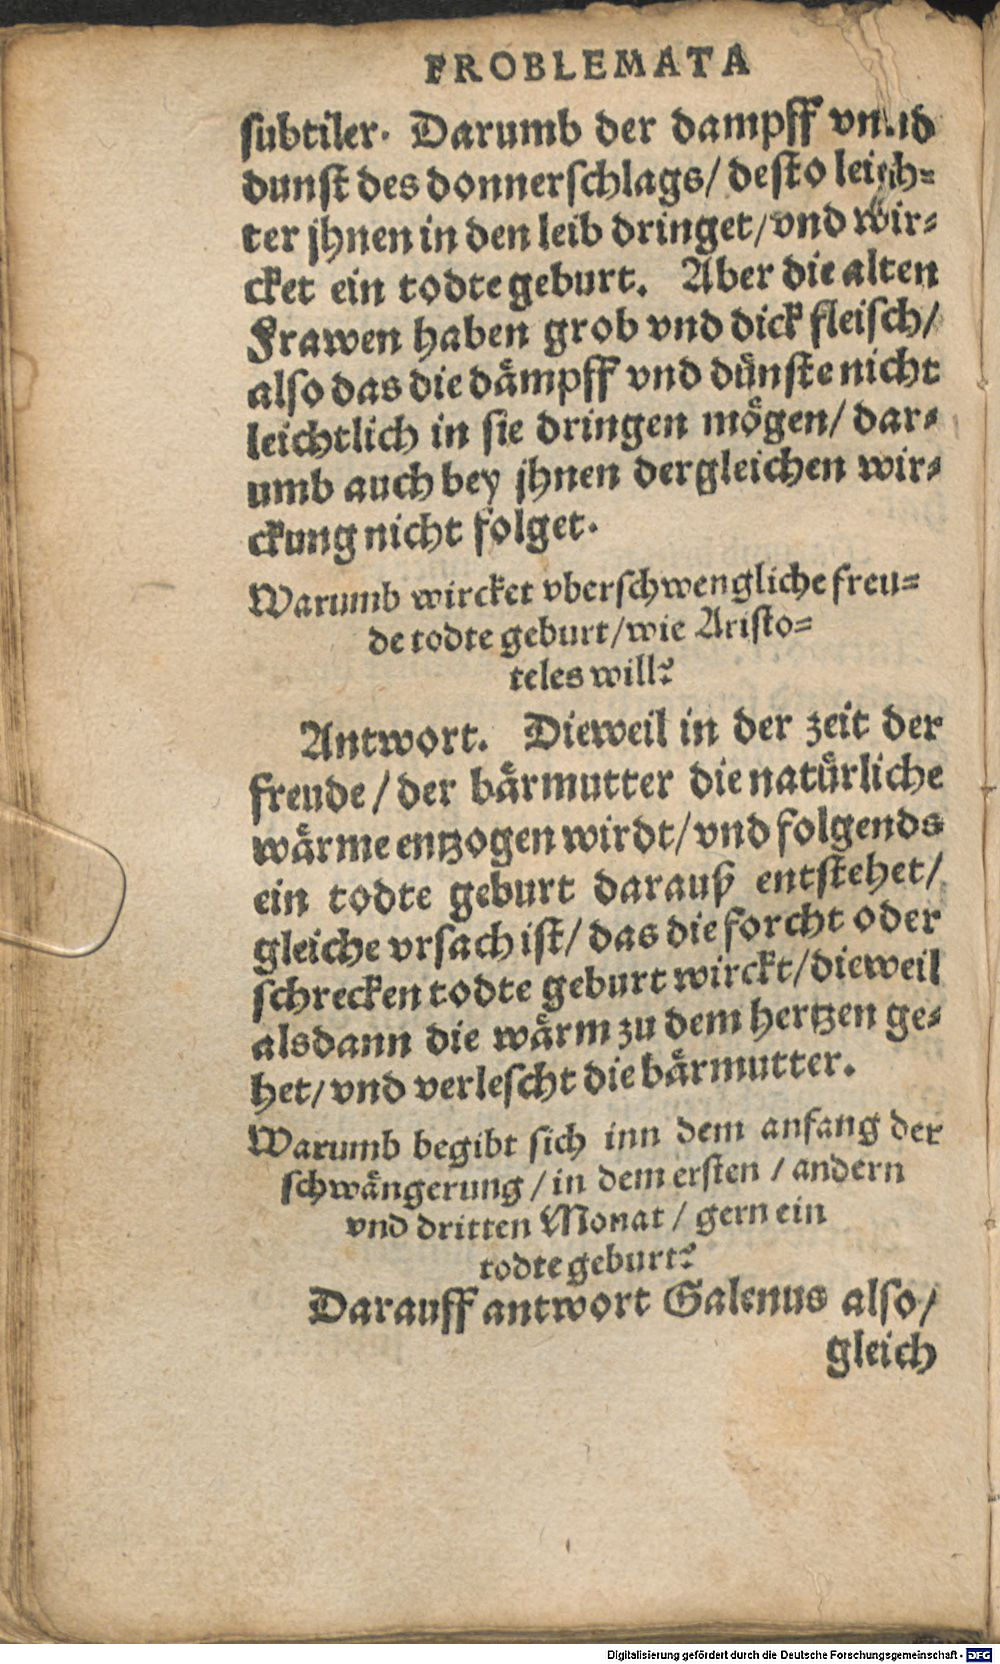 PROBLEMATA
subtiler. Darumb der dampff vnnd
dunst des donnerschlags/ desto leich⸗
ter jhnen in den leib dringet/ vnd wir⸗
cket ein todte geburt. Aber die alten
Frawen haben grob vnd dick fleisch/
also das die dämpff vnd dünste nicht
leichtlich in sie dringen mögen/ dar⸗
umb auch bey jhnen dergleichen wir⸗
ckung nicht folget.
Warumb wircket vberschwengliche freu⸗
de todte geburt/ wie Aristo⸗
teles will?
Antwort. Dieweil in der zeit der
freude/ der bärmutter die natürliche
wärme entzogen wirdt/ vnd folgends
ein todte geburt darauß entstehet/
gleiche vrsach ist/ das die forcht oder
schrecken todte geburt wirckt/ dieweil
alsdann die wärm zu dem hertzen ge⸗
het/ vnd verlescht die bärmutter.
Warumb begibt sich inn dem anfang der
schwängerung/ in dem ersten / andern
vnd dritten Monat/ gern ein
todte geburt?
Darauff antwort Galenus also/
gleich
Digitalisierung gefördert durch die Deutsche Forschungsgemeinschaft - DFG